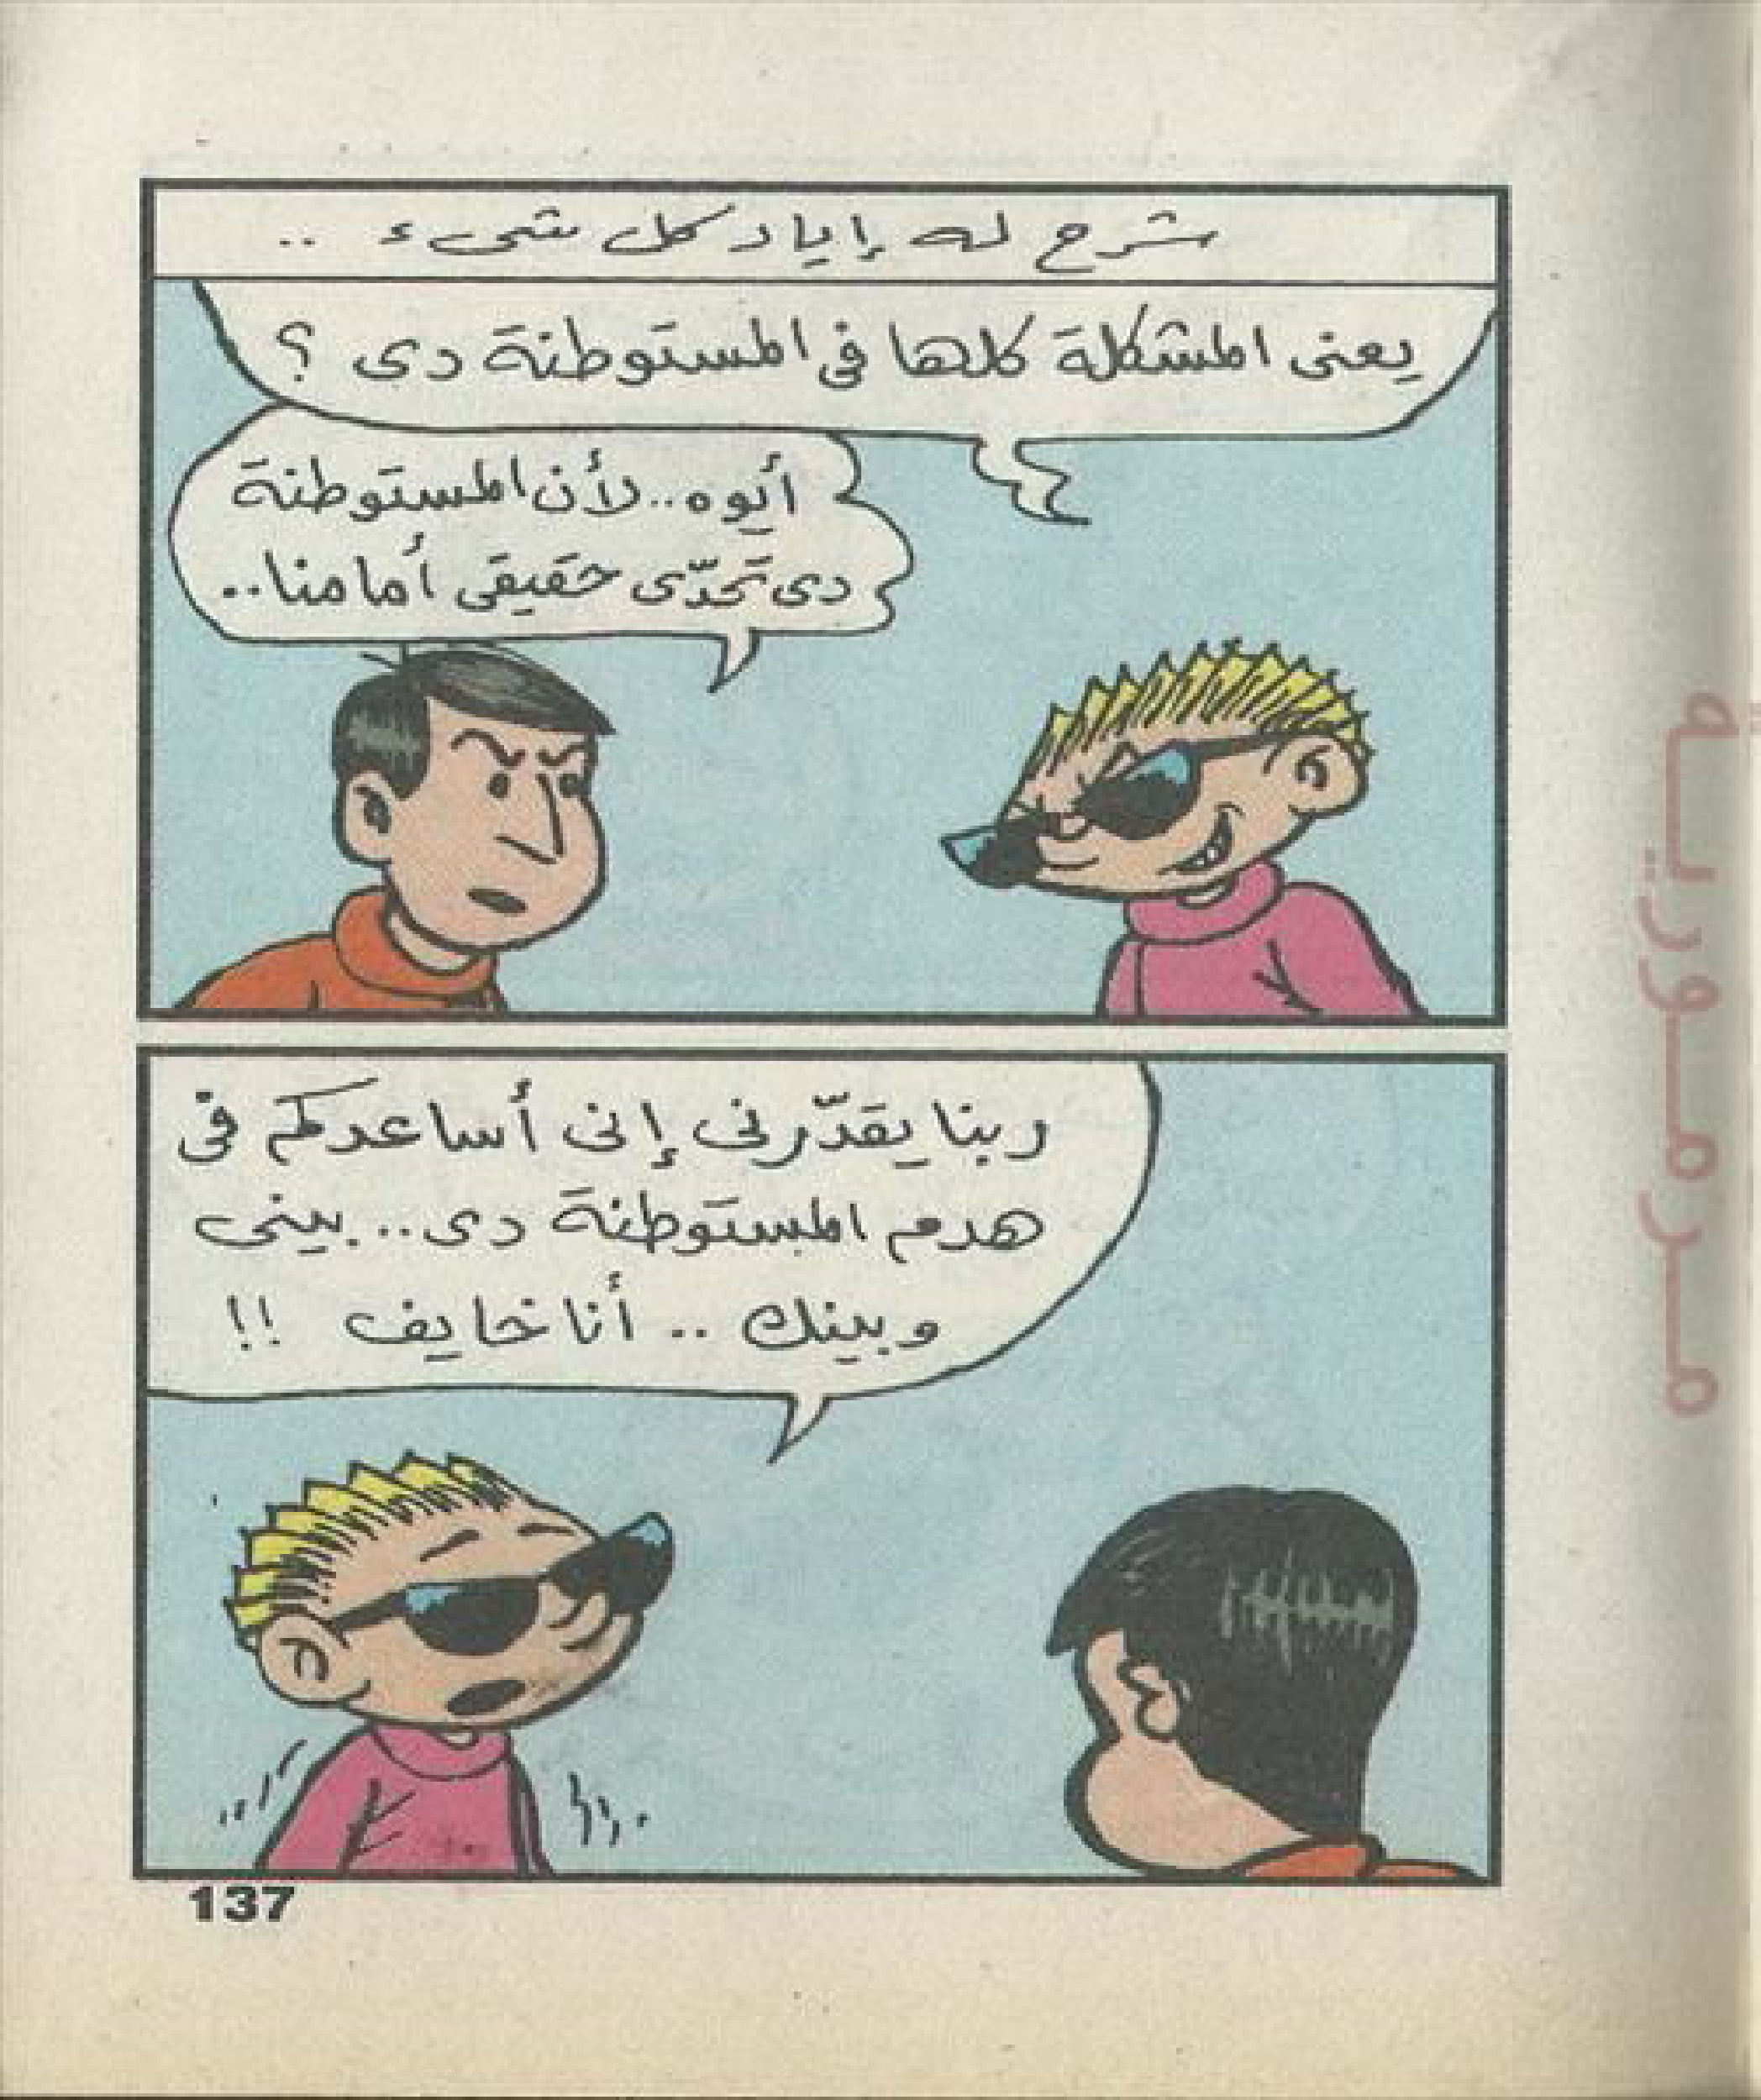 شرح له إياد كل شىء ..
يعنى المشكلة كلها فى المستوطنة دى ؟
أيوه .. لأن المستوطنة
دى تحدّى حقيقى أمامنا ..
ربنا يقدّرنى إنى أساعدكم فى
هدم المستوطنة دى .. بينى
وبينك .. أنا خايف !!
137